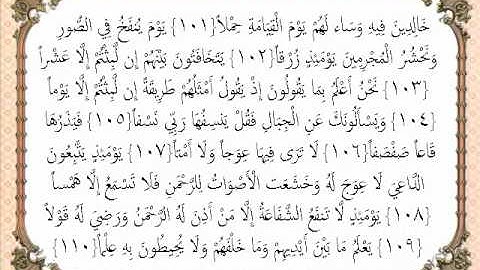 خَالِدِينَ فِيهِ وَسَاء لَهُمْ يَوْمَ الْقِيَامَةِ حِمْلاً{١٠١} يَوْمَ يُنفَخُ فِي الصُّورِ
وَنَحْشُرُ الْمُجْرِمِينَ يَوْمَئِذٍ زُرْقاً{١٠٢} يَتَخَافَتُونَ بَيْنَهُمْ إِن لَّبِثْتُمْ إِلَّا عَشْراً
{١٠٣} نَحْنُ أَعْلَمُ بِمَا يَقُولُونَ إِذْ يَقُولُ أَمْثَلُهُمْ طَرِيقَةً إِن لَّبِثْتُمْ إِلَّا يَوْماً
{١٠٤} وَيَسْأَلُونَكَ عَنِ الْجِبَالِ فَقُلْ يَنسِفُهَا رَبِّي نَسْفاً{١٠٥} فَيَذَرُهَا
قَاعاً صَفْصَفاً{١٠٦} لَا تَرَى فِيهَا عِوَجاً وَلَا أَمْتاً{١٠٧} يَوْمَئِذٍ يَتَّبِعُونَ
الدَّاعِيَ لَا عِوَجَ لَهُ وَخَشَعَت الْأَصْوَاتُ لِلرَّحْمَنِ فَلَا تَسْمَعُ إِلَّا هَمْساً
{١٠٨} يَوْمَئِذٍ لَّا تَنفَعُ الشَّفَاعَةُ إِلَّا مَنْ أَذِنَ لَهُ الرَّحْمَنُ وَرَضِيَ لَهُ قَوْلاً
{١٠٩} يَعْلَمُ مَا بَيْنَ أَيْدِيهِمْ وَمَا خَلْفَهُمْ وَلَا يُحِيطُونَ بِهِ عِلْماً{١١٠}